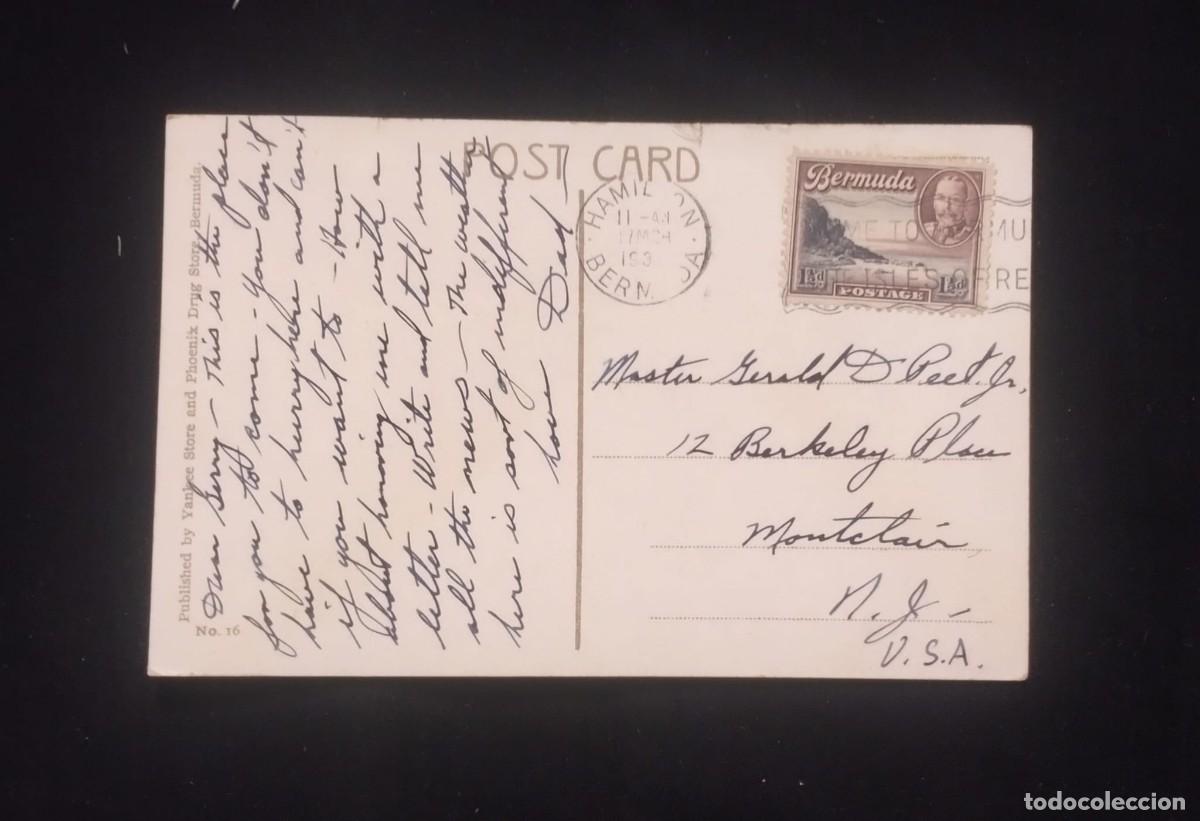 POST CARD
Published by Yankee Store and Phoenix Drug Store, Bermuda.
No. 16
Dear Gerry - This is the place
for you to come - you don't
have to hurry here and can't
if you want to - How
about honoring me with a
letter - Write and tell me
all the news - The weather
here is sort of indifferent
love Dad -
HAMILTON
11 - AM
17 MCH
193
BERMUDA
Bermuda
1½d POSTAGE 1½d
ME TO MU
ISLES OF RE
Master Gerald D Peet. Jr,
12 Berkeley Place
Montclair
N. J -
U. S. A.
todocoleccion